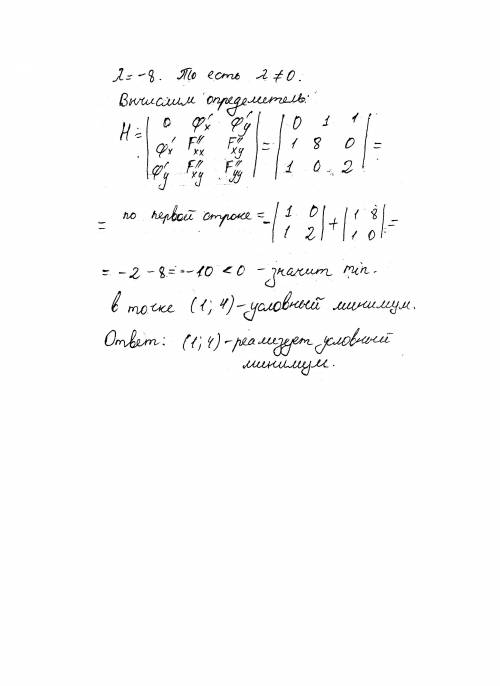 λ = -8. То есть λ ≠ 0.
Вычислим определитель:
H = | 0 φ'x φ'y | = | 0 1 1 | =
| φ'x F''xx F''xy | | 1 8 0 |
| φ'y F''xy F''yy | | 1 0 2 |
= по первой строке = - | 1 0 | + | 1 8 | =
| 1 2 | | 1 0 |
= -2 - 8 = -10 < 0 - значит min.
в точке (1; 4) - условный минимум.
Ответ: (1; 4) - реализует условный
минимум.